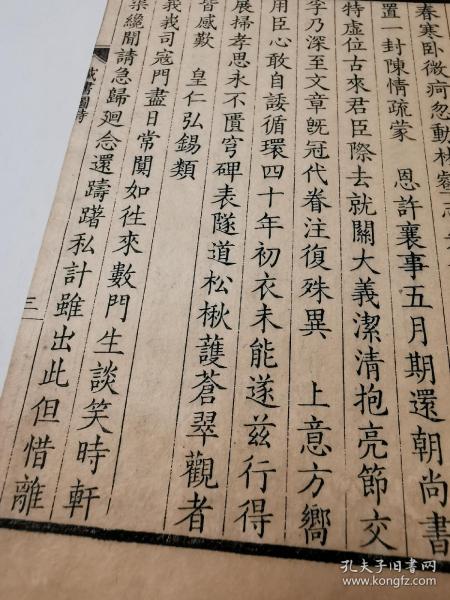 春寒卧微疴忽動林壑志
置一封陳情疏蒙 恩許襄事五月期還朝尚書
特虛位古來君臣際去就關大義潔清抱亮節交
孚乃深至文章旣冠代眷注復殊異 上意方嚮
用臣心敢自諉循環四十年初衣未能遂兹行得
展掃孝思永不匱穹碑表隧道松楸䕶蒼翠觀者
皆感歎 皇仁弘錫類
我我司寇門盡日常閴如徃來數門生談笑時軒
渠纔聞請急歸廻念還躊躇私計雖出此但惜離
三
孔夫子旧书网
www.kongfz.com